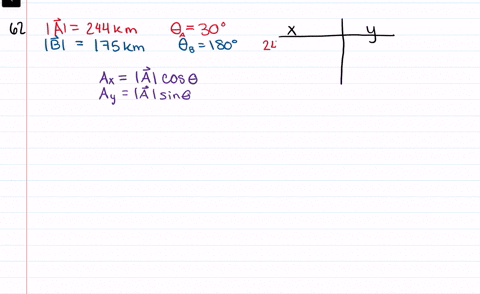 62 |A⃗| = 244 km θA = 30° x y
|B⃗| = 175 km θB = 180° 24
Ax = |A⃗| cosθ
Ay = |A⃗| sinθ